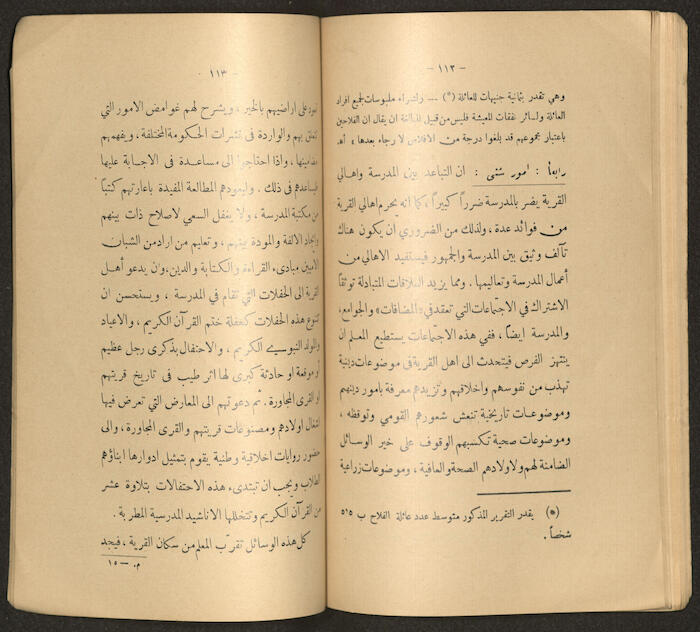 — ١١٢ —
وهي تقدر بثمانية جنيهات للعائلة (*) — ولشراء ملبوسات لجميع افراد
العائلة ولسائر نفقات المعيشة فليس من قبيل المبالغة ان يقال ان الفلاحين
باعتبار مجموعهم قد بلغوا درجة من الافلاس لا رجاء بعدها » اه.
رابعاً : امور شتى : ان التباعد بين المدرسة واهالي
القرية يضر بالمدرسة ضرراً كبيراً ، كما انه يحرم اهالي القرية
من فوائد عدة ، ولذلك من الضروري ان يكون هناك
تآلف وثيق بين المدرسة والجمهور فيستفيد الاهالي من
أعمال المدرسة وتعاليمها . ومما يزيد العلاقات المتبادلة توثقاً
الاشتراك في الاجتماعات التي تعقد في «المضافات» والجوامع،
والمدرسة ايضاً ، ففي هذه الاجتماعات يستطيع المعلم ان
ينتهز الفرص فيتحدث الى اهل القرية في موضوعات دينية
تهذب من نفوسهم واخلاقهم وتزيدهم معرفة بامور دينهم
وموضوعات تاريخية تنعش شعورهم القومي وتوقظه ،
وموضوعات صحية تكسبهم الوقوف على خير الوسائل
الضامنة لهم ولاولادهم الصحة والعافية ، وموضوعات زراعية
(*) يقدر التقرير المذكور متوسط عدد عائلة الفلاح ب ٥١٥
شخصاً .
— ١١٣ —
تعود على اراضيهم بالخير ، ويشرح لهم غوامض الامور التي
تتعلق بهم والواردة في نشرات الحكومة المختلفة ، ويفهمهم
مضامينها ، واذا احتاجوا الى مساعدة في الاجابة عليها
فيساعدهم في ذلك . وليعودهم المطالعة المفيدة باعارتهم كتباً
من مكتبة المدرسة ، ولا يغفل السعي لاصلاح ذات بينهم
وايجاد الالفة والمودة بينهم ، وتعليم من اراد من الشبان
الاميين مبادىء القراءة والكتابة والدين، وان يدعو أهل
القرية الى الحفلات التي تقام في المدرسة ، ويستحسن ان
تتنوع هذه الحفلات كحفلة ختم القرآن الكريم ، والاعياد
والمولد النبوي الكريم ، والاحتفال بذكرى رجل عظيم
او موقعة او حادثة كبرى لها اثر طيب في تاريخ قريتهم
او القرى المجاورة . ثم دعوتهم الى المعارض التي تعرض فيها
اشغال اولادهم ومصنوعات قريتهم والقرى المجاورة ، والى
حضور روايات اخلاقية وطنية يقوم بتمثيل ادوارها ابناؤهم
الطلاب ويجب ان تبتدىء هذه الاحتفالات بتلاوة عشر
من القرآن الكريم وتتخللها الاناشيد المدرسية المطربة .
كل هذه الوسائل تقرب المعلم من سكان القرية ، فيجد
م. — ١٥